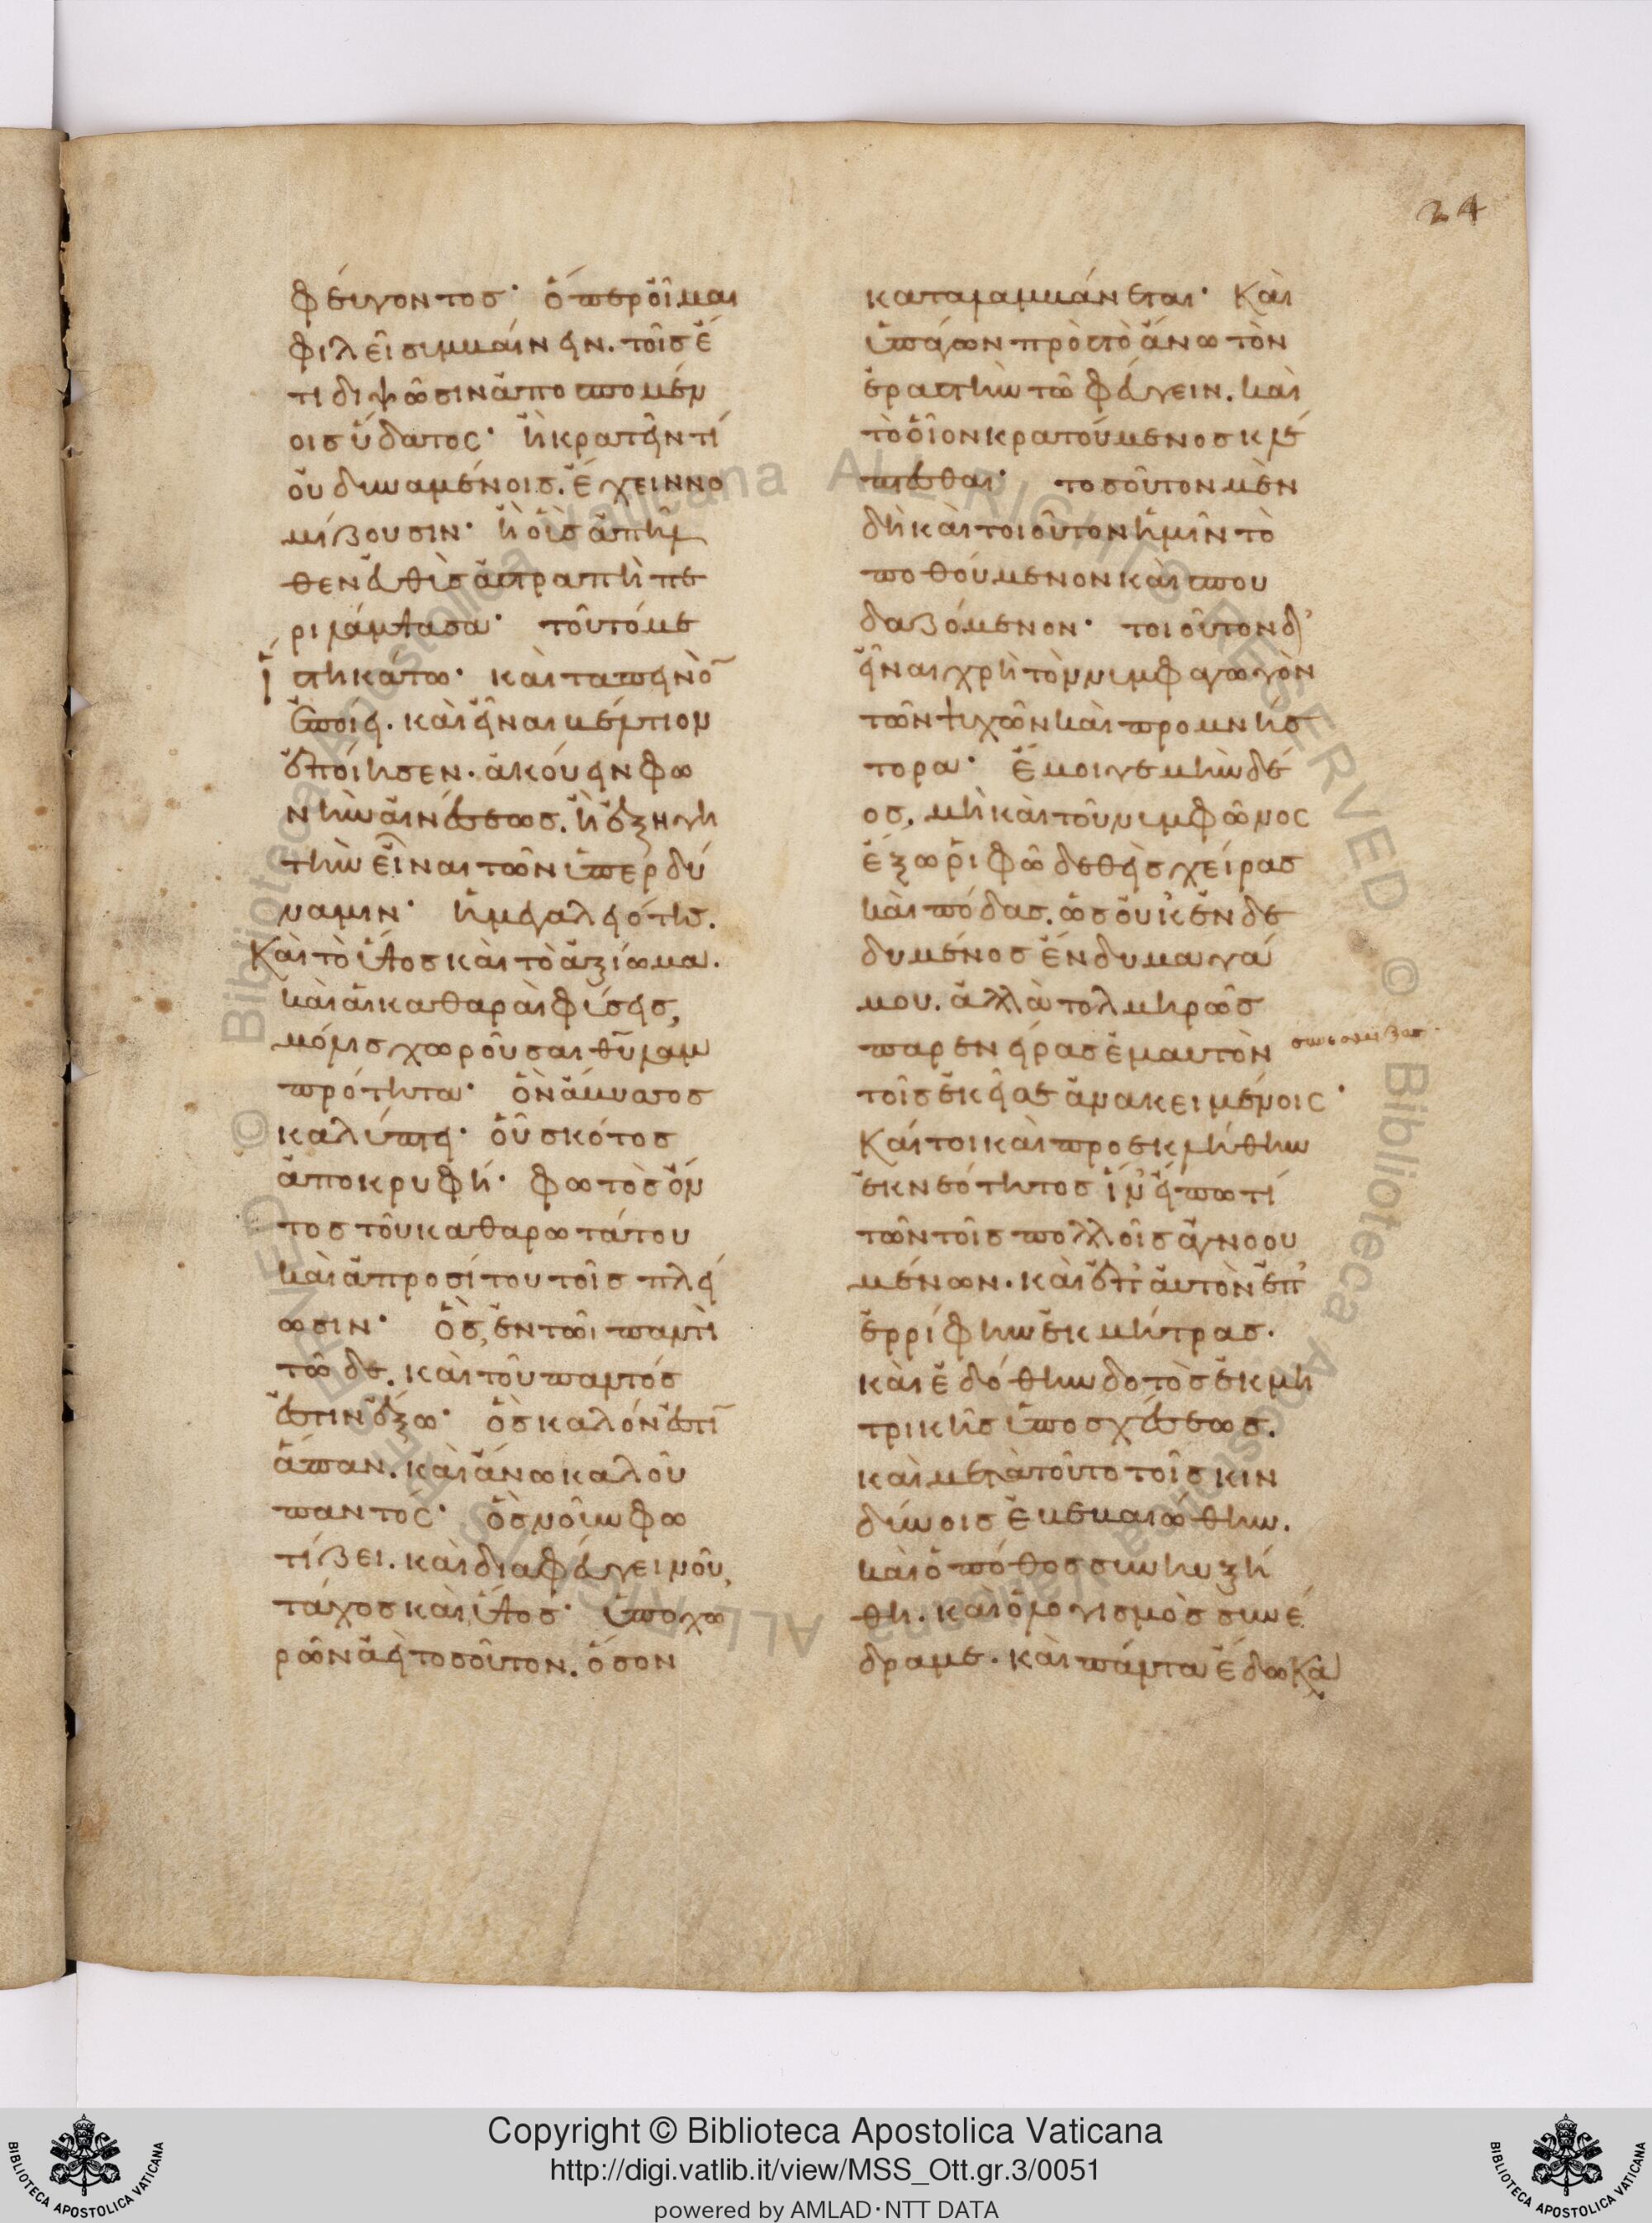 φεύγοντος· ὅπερ οἶμαι
φιλεῖ συμβαίνειν. τοῖς ἔ
τι διψῶσιν ἀποσπωμέν
οις ὕδατος· ἢ κρατεῖν τί
οὐ δυναμένοις. ἔχειν νο
μίζουσιν· ἢ οἷς ἀπῆλ
θεν εὐθὺς ἀστραπὴ πε
ριλάμψασα· τοῦτό με
ἵστη κάτω· καὶ ταπεινὸ̅
ἐποίει. καὶ εἶναι βέλτιον
ἐποίησεν. ἀκούειν φω
νὴν αἰνέσεως. ἢ ἐξηγη
τὴν εἶναι τῶν ὑπὲρ δύ
ναμιν· ἡ μεγαλειότης.
Καὶ τὸ ὕψος καὶ τὸ ἀξίωμα.
καὶ αἱ καθαραὶ φύσεις,
μόλις χωροῦσαι θῦ λαμ
πρότητα· ὃν ἄβυσσος
καλύπτει· οὗ σκότος
ἀποκρυφή· φωτὸς ὄν
τος τοῦ καθαρωτάτου
καὶ ἀπροσίτου τοῖς πλεί
οσιν· ὃς, ἐν τῶι παντὶ
τῶδε. καὶ τοῦ παντός
ἐστιν ἔξω· ὃς καλόν ἐστι̅
ἅπαν. καὶ ἄνω καλοῦ
παντός· ὃς νοῦν φω
τίζει. καὶ διαφεύγει νοῦ,
τάχος καὶ ὕψος· ὑποχω
ρῶν ἀεὶ τοσοῦτον. ὅσον
καταλαμβάνεται· Καὶ
ὑπάγων πρὸς τὸ ἄνω τὸν
ἐραστὴν τῶ φεύγειν. καὶ
τὸ οἷον κρατούμενος κλέ
πτεσθαι· τοσοῦτον μὲν
δὴ καὶ τοιοῦτον ἡμῖν τὸ
ποθούμενον καὶ σπου
δαζόμενον· τοιοῦτον δ'
εἶναι χρὴ τὸν νυμφαγωγὸν
τῶν ψυχῶν καὶ προμνήσ
τορα· ἔμοιγε μὴν δέ
ος, μὴ καὶ τοῦ νυμφῶνος
ἔξω ῥιφῶ δεθεὶς χεῖρας
καὶ πόδας. ὡς οὐκ ἐνδε
δυμένος ἔνδυμα γά
μου. ἀλλὰ τολμηρῶς
παρενείρας ἐμαυτὸν
τοῖς ἐκεῖσε ἀνακειμένοις·
Καίτοι καὶ προσεκλήθην
ἐκ νεότητος ἵν' εἴπω τί
τῶν τοῖς πολλοῖς ἀγνοου
μένων. καὶ ἐπ' αὐτὸν ἐπ'
ἐρρίφην ἐκ μήτρας.
καὶ ἐδόθην δοτὸς ἐκ μη
τρικῆς ὑποσχέσεως.
καὶ μετὰ τοῦτο τοῖς κιν
δύνοις ἐβεβαιώθην.
καὶ ὁ πόθος συνηυξή
θη. καὶ ὁ λογισμὸς συνέ
δραμε. καὶ πάντα ἔδωκα
24